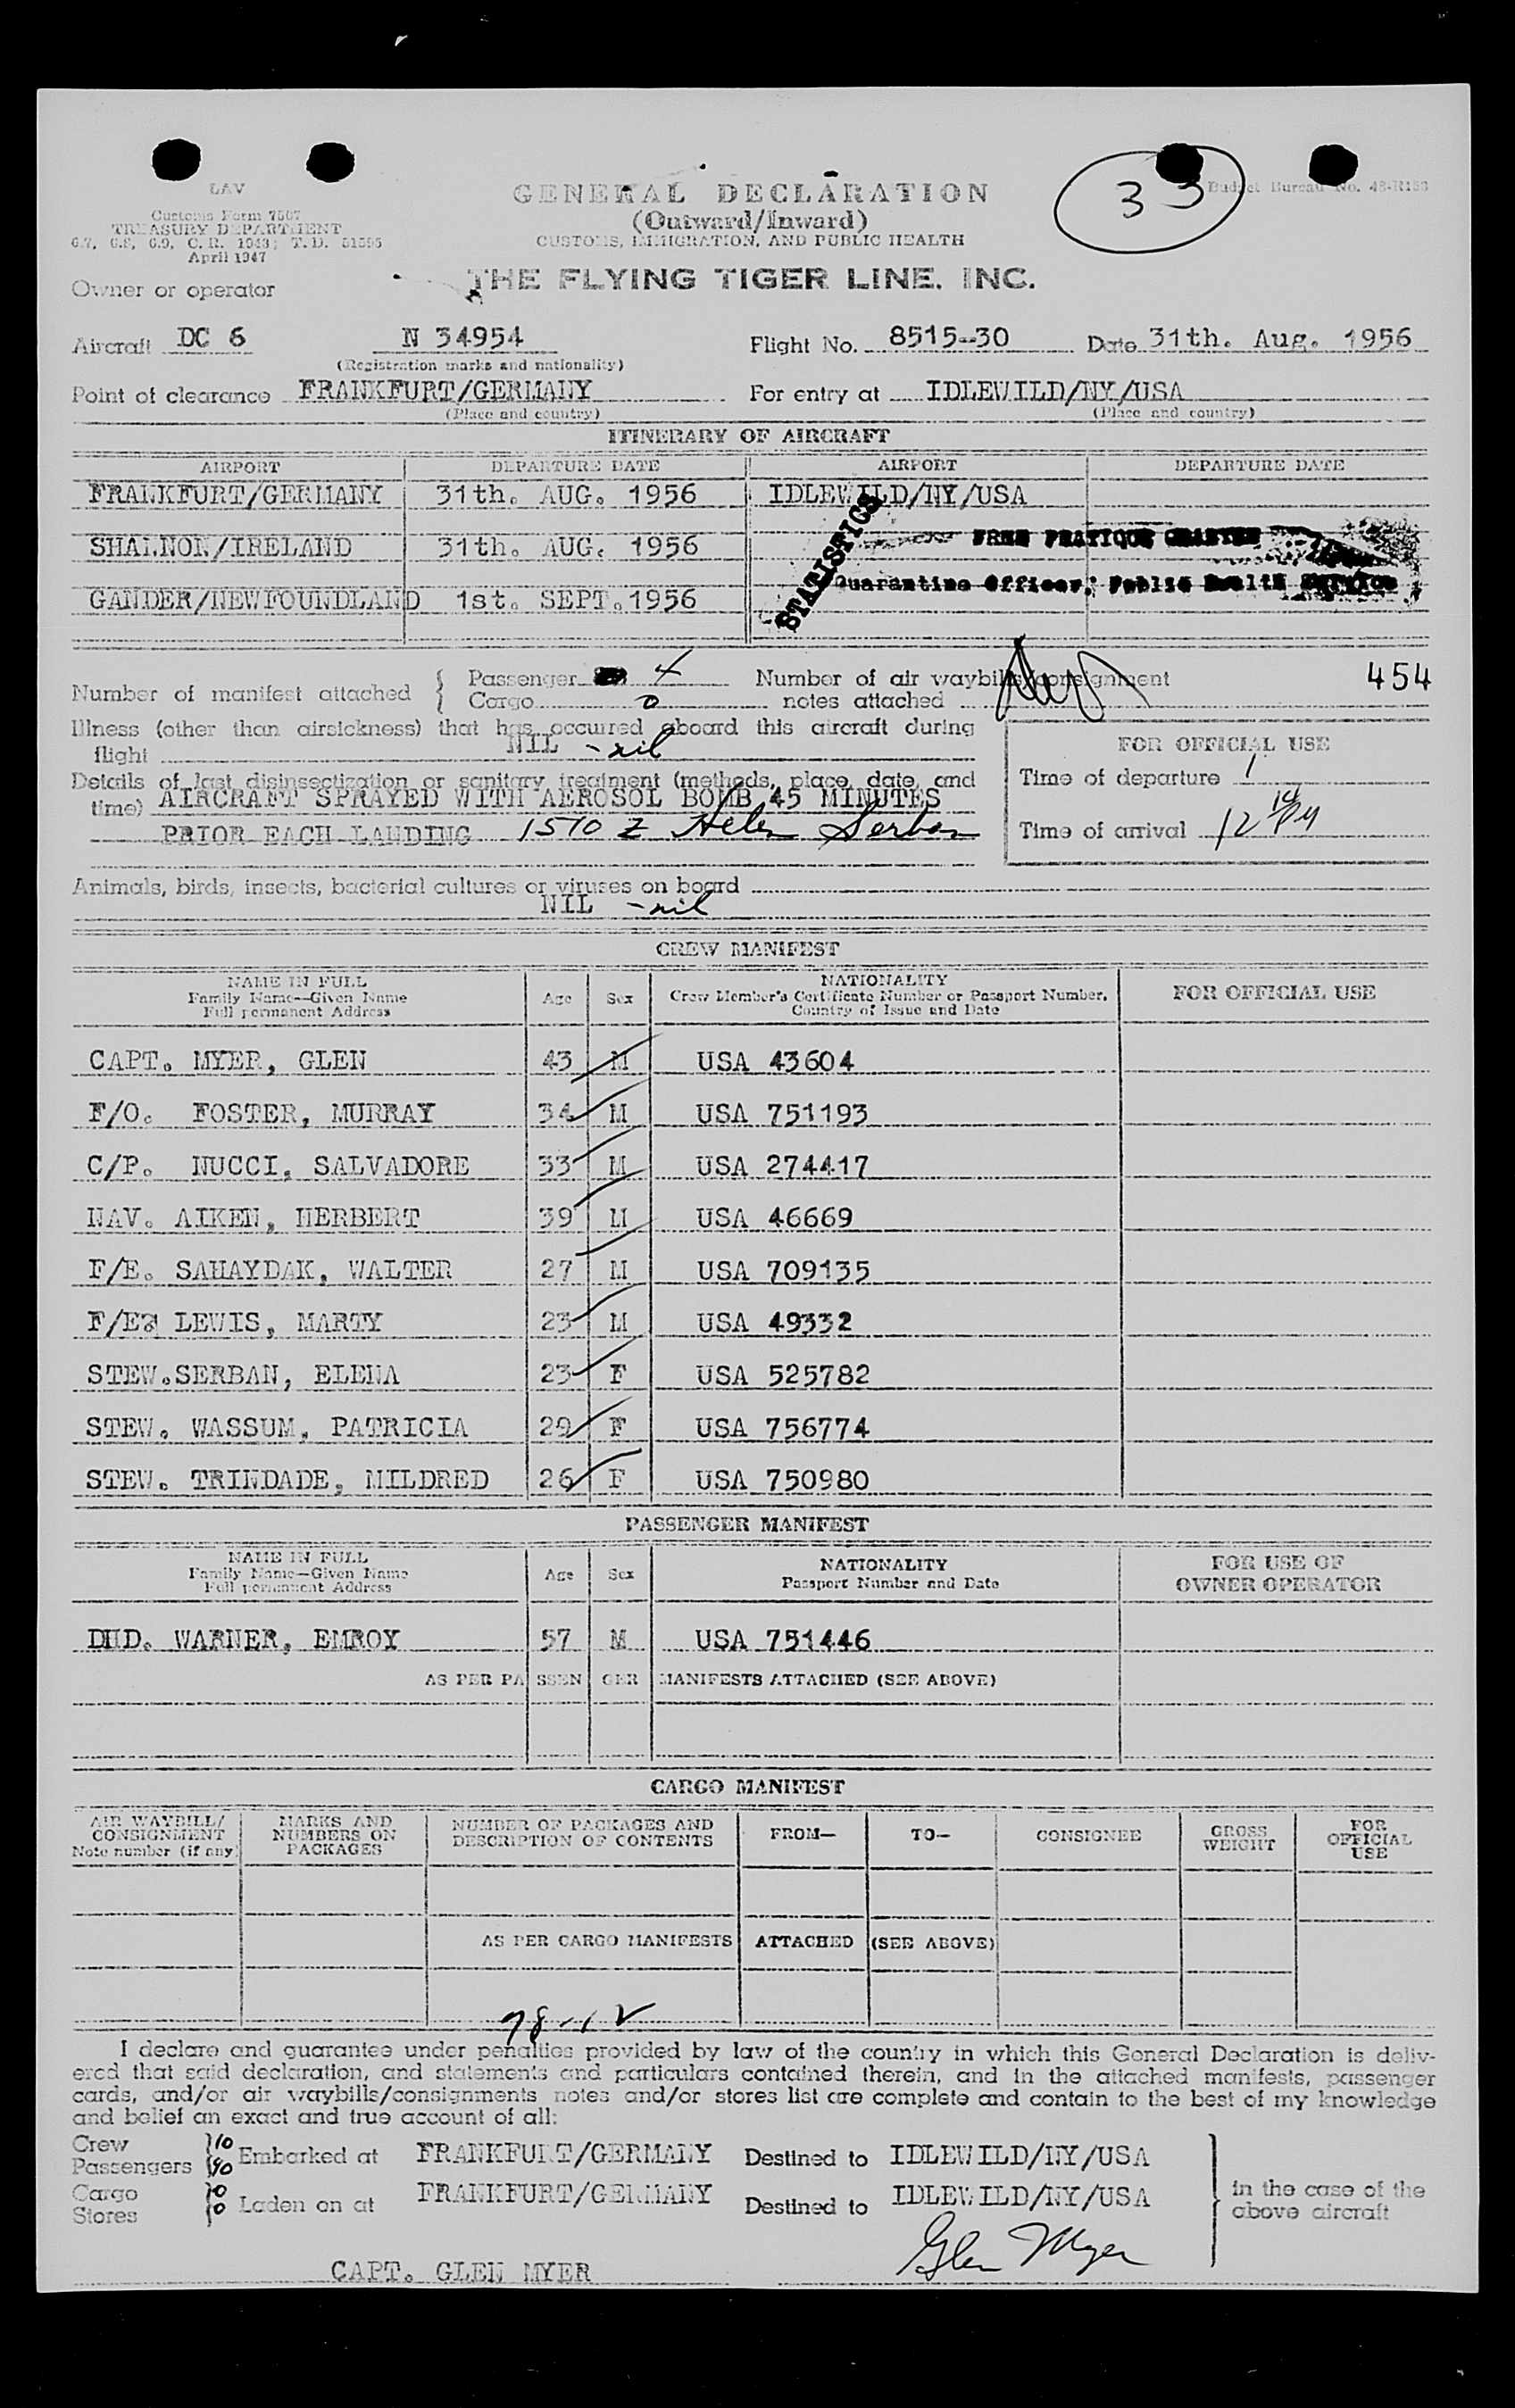 33
LAV
Customs Form 7507
TREASURY DEPARTMENT
6.7, 6.8, 6.9, C. R. 1943; T. D. 51595
April 1947
GENERAL DECLARATION
(Outward/Inward)
CUSTOMS, IMMIGRATION, AND PUBLIC HEALTH
Budget Bureau No. 48-R183
Owner or operator THE FLYING TIGER LINE. INC.
Aircraft DC 6 N 34954 Flight No. 8515--30 Date 31th. Aug. 1956
(Registration marks and nationality)
Point of clearance FRANKFURT/GERMANY For entry at IDLEWILD/NY/USA
(Place and country) (Place and country)
ITINERARY OF AIRCRAFT
AIRPORT DEPARTURE DATE AIRPORT DEPARTURE DATE
FRANKFURT/GERMANY 31th. AUG. 1956 IDLEWILD/NY/USA
STATISTICS
FREE PRATIQUE GRANTED
SHANNON/IRELAND 31th. AUG. 1956
Quarantine Officer, Public Health Service
GANDER/NEWFOUNDLAND 1st. SEPT.1956
Number of manifest attached { Passenger 4 Number of air waybills/consignment 454
Cargo 0 notes attached
Illness (other than airsickness) that has occurred aboard this aircraft during
flight NIL - nil
FOR OFFICIAL USE
Details of last disinsectization or sanitary treatment (methods, place, date, and
time) AIRCRAFT SPRAYED WITH AEROSOL BOMB 45 MINUTES
Time of departure
PRIOR EACH LANDING 1510 Z Helen Serban
Time of arrival 12
Animals, birds, insects, bacterial cultures or viruses on board
NIL - nil
CREW MANIFEST
NAME IN FULL
Family Name--Given Name
Full permanent Address
Age Sex
NATIONALITY
Crew Member's Certificate Number or Passport Number,
Country of Issue and Date
FOR OFFICIAL USE
CAPT. MYER, GLEN 43 M USA 43604
F/O. FOSTER, MURRAY 34 M USA 751193
C/P. NUCCI, SALVADORE 33 M USA 274417
NAV. AIKEN, HERBERT 39 M USA 46669
F/E. SAHAYDAK, WALTER 27 M USA 709135
F/E. LEWIS, MARTY 23 M USA 49332
STEW.SERBAN, ELENA 23 F USA 525782
STEW. WASSUM, PATRICIA 29 F USA 756774
STEW. TRINDADE, MILDRED 26 F USA 750980
PASSENGER MANIFEST
NAME IN FULL
Family Name—Given Name
Full permanent Address
Age Sex
NATIONALITY
Passport Number and Date
FOR USE OF
OWNER OPERATOR
DHD. WARNER, EMROY 57 M USA 751446
AS PER PASSENGER MANIFESTS ATTACHED (SEE ABOVE)
CARGO MANIFEST
AIR WAYBILL/
CONSIGNMENT
Note number (if any)
MARKS AND
NUMBERS ON
PACKAGES
NUMBER OF PACKAGES AND
DESCRIPTION OF CONTENTS
FROM—
TO—
CONSIGNEE
GROSS
WEIGHT
FOR
OFFICIAL
USE
AS PER CARGO MANIFESTS ATTACHED (SEE ABOVE)
I declare and guarantee under penalties provided by law of the country in which this General Declaration is deliv-
ered that said declaration, and statements and particulars contained therein, and in the attached manifests, passenger
cards, and/or air waybills/consignments notes and/or stores list are complete and contain to the best of my knowledge
and belief an exact and true account of all:
Crew 10
Passengers 80
Embarked at FRANKFURT/GERMANY Destined to IDLEWILD/NY/USA
Cargo 0
Stores 0
Laden on at FRANKFURT/GERMANY Destined to IDLEWILD/NY/USA
in the case of the
above aircraft
CAPT. GLEN MYER Glen Myer